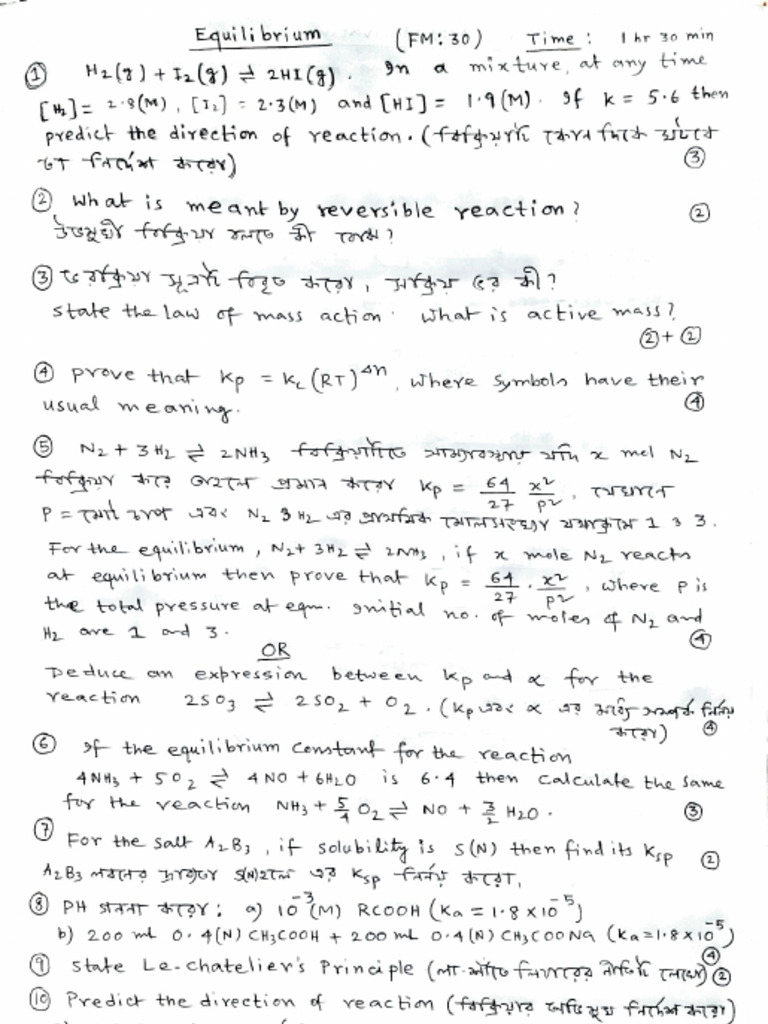 Equilibrium (FM: 30) Time: 1 hr 30 min
① H₂(g) + I₂(g) ⇌ 2HI(g). In a mixture, at any time
[H₂] = 2.8(M), [I₂] = 2.3(M) and [HI] = 1.9(M). If k = 5.6 then
predict the direction of reaction. (বিক্রিয়াটি কোন দিকে ঘটবে
তা নির্দেশ করো) ③
② What is meant by reversible reaction? ②
উভমুখী বিক্রিয়া বলতে কী বোঝ?
③ ভরক্রিয়া সূত্রটি বিবৃত করো, সক্রিয় ভর কী?
State the law of mass action. What is active mass?
②+②
④ Prove that Kp = Kc (RT)^Δn, where symbols have their
usual meaning. ④
⑤ N₂ + 3H₂ ⇌ 2NH₃ বিক্রিয়াটিতে সাম্যাবস্থায় যদি x mol N₂
বিক্রিয়া করে তাহলে প্রমাণ করো Kp = 64/27 x²/P², যেখানে
P = মোট চাপ এবং N₂ ও H₂ এর প্রাথমিক মোলসংখ্যা যথাক্রমে 1 ও 3.
For the equilibrium, N₂ + 3H₂ ⇌ 2NH₃, if x mole N₂ reacts
at equilibrium then prove that Kp = 64/27 . x²/P², where P is
the total pressure at eqm. Initial no. of moles of N₂ and
H₂ are 1 and 3. ④
OR
Deduce an expression between Kp and α for the
reaction 2SO₃ ⇌ 2SO₂ + O₂. (Kp এবং α এর মধ্যে সম্পর্ক নির্ণয়
করো) ④
⑥ If the equilibrium constant for the reaction
4NH₃ + 5O₂ ⇌ 4NO + 6H₂O is 6.4 then calculate the same
for the reaction NH₃ + 5/4 O₂ ⇌ NO + 3/2 H₂O. ③
⑦ For the salt A₂B₃, if solubility is S(N) then find its Ksp ②
A₂B₃ লবনের দ্রাব্যতা S(N) হলে এর Ksp নির্ণয় করো,
⑧ PH গননা করো: a) 10⁻³(M) RCOOH (Ka = 1.8 x 10⁻⁵)
b) 200 ml 0.4(N) CH₃COOH + 200 ml 0.4(N) CH₃COONa (Ka = 1.8 x 10⁻⁵)
④
⑨ State Le-Chatelier's Principle (লা-শাতে লিয়ারের নীতিটি লেখো) ②
⑩ Predict the direction of reaction (বিক্রিয়ার অভিমুখ নির্দেশ করো)